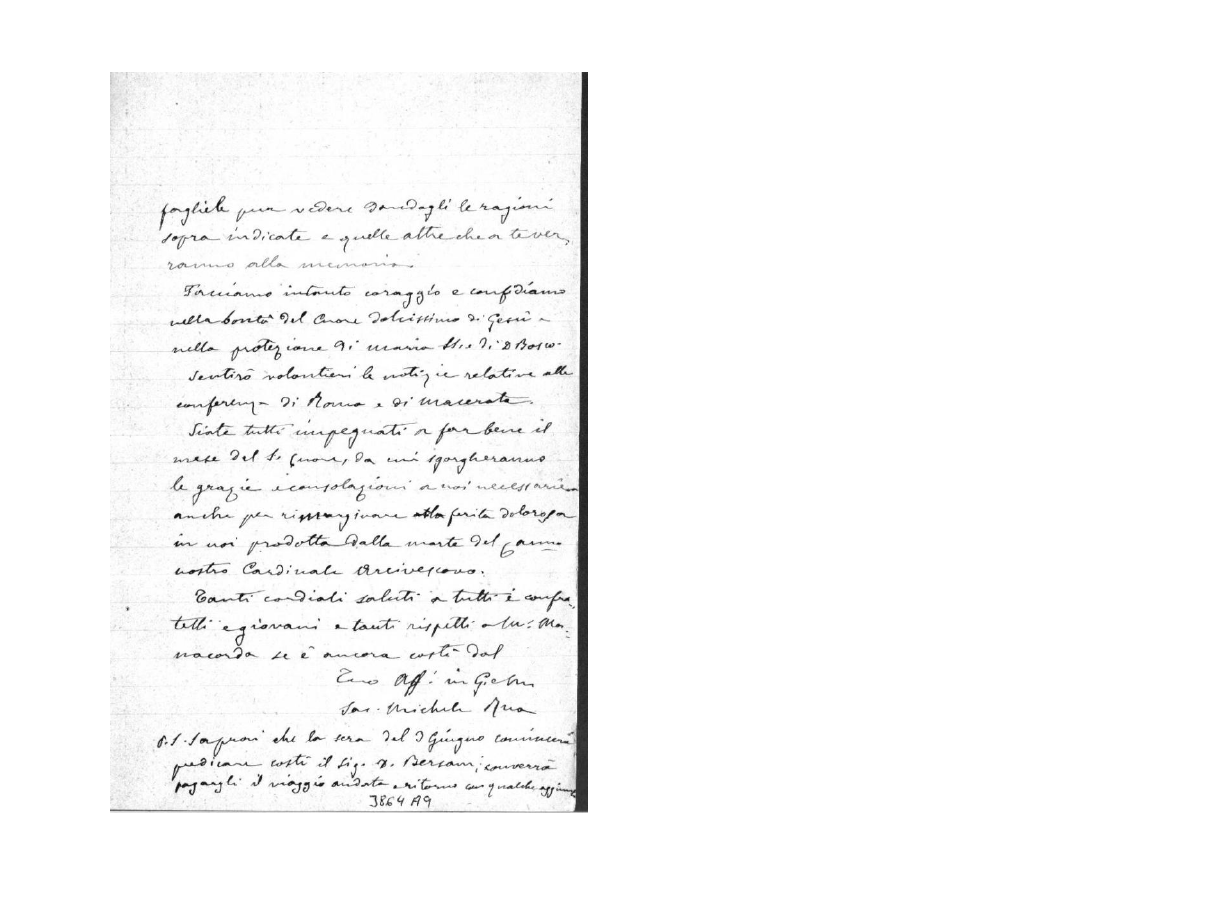 farglielo pur vedere dandogli le ragioni
sopra indicate e quelle altre che a te ver,
ranno alla memoria.
Facciamo intanto coraggio e confidiamo
nella bontà del Cuore dolcissimo di Gesù e
nella protezione di Maria SS. e di D Bosco.
Sentirò volontieri le notizie relative alle
conferenze di Roma e di Macerata.
Siate tutti impegnati a far bene il
mese del S. Cuore, da cui sgorgheranno
le grazie e consolazioni a noi necessarie
anche per rimarginare ferita dolorosa
in noi prodotta dalla morte del Carmo
nostro Cardinale Arcivescovo.
Tanti cordiali saluti a tutti i confra,
telli e giovani e tanti rispetti a Mr. Ma-
nacorda se è ancora costì dal
Tuo Aff. in G. e M.
Sac. Michele Rua
P.S. Saprai che la sera del 3 Giugno comincerà
predicare costì il Sig. D. Bersani; converrà
pagargli il viaggio andata e ritorno con qualche
3864 A9